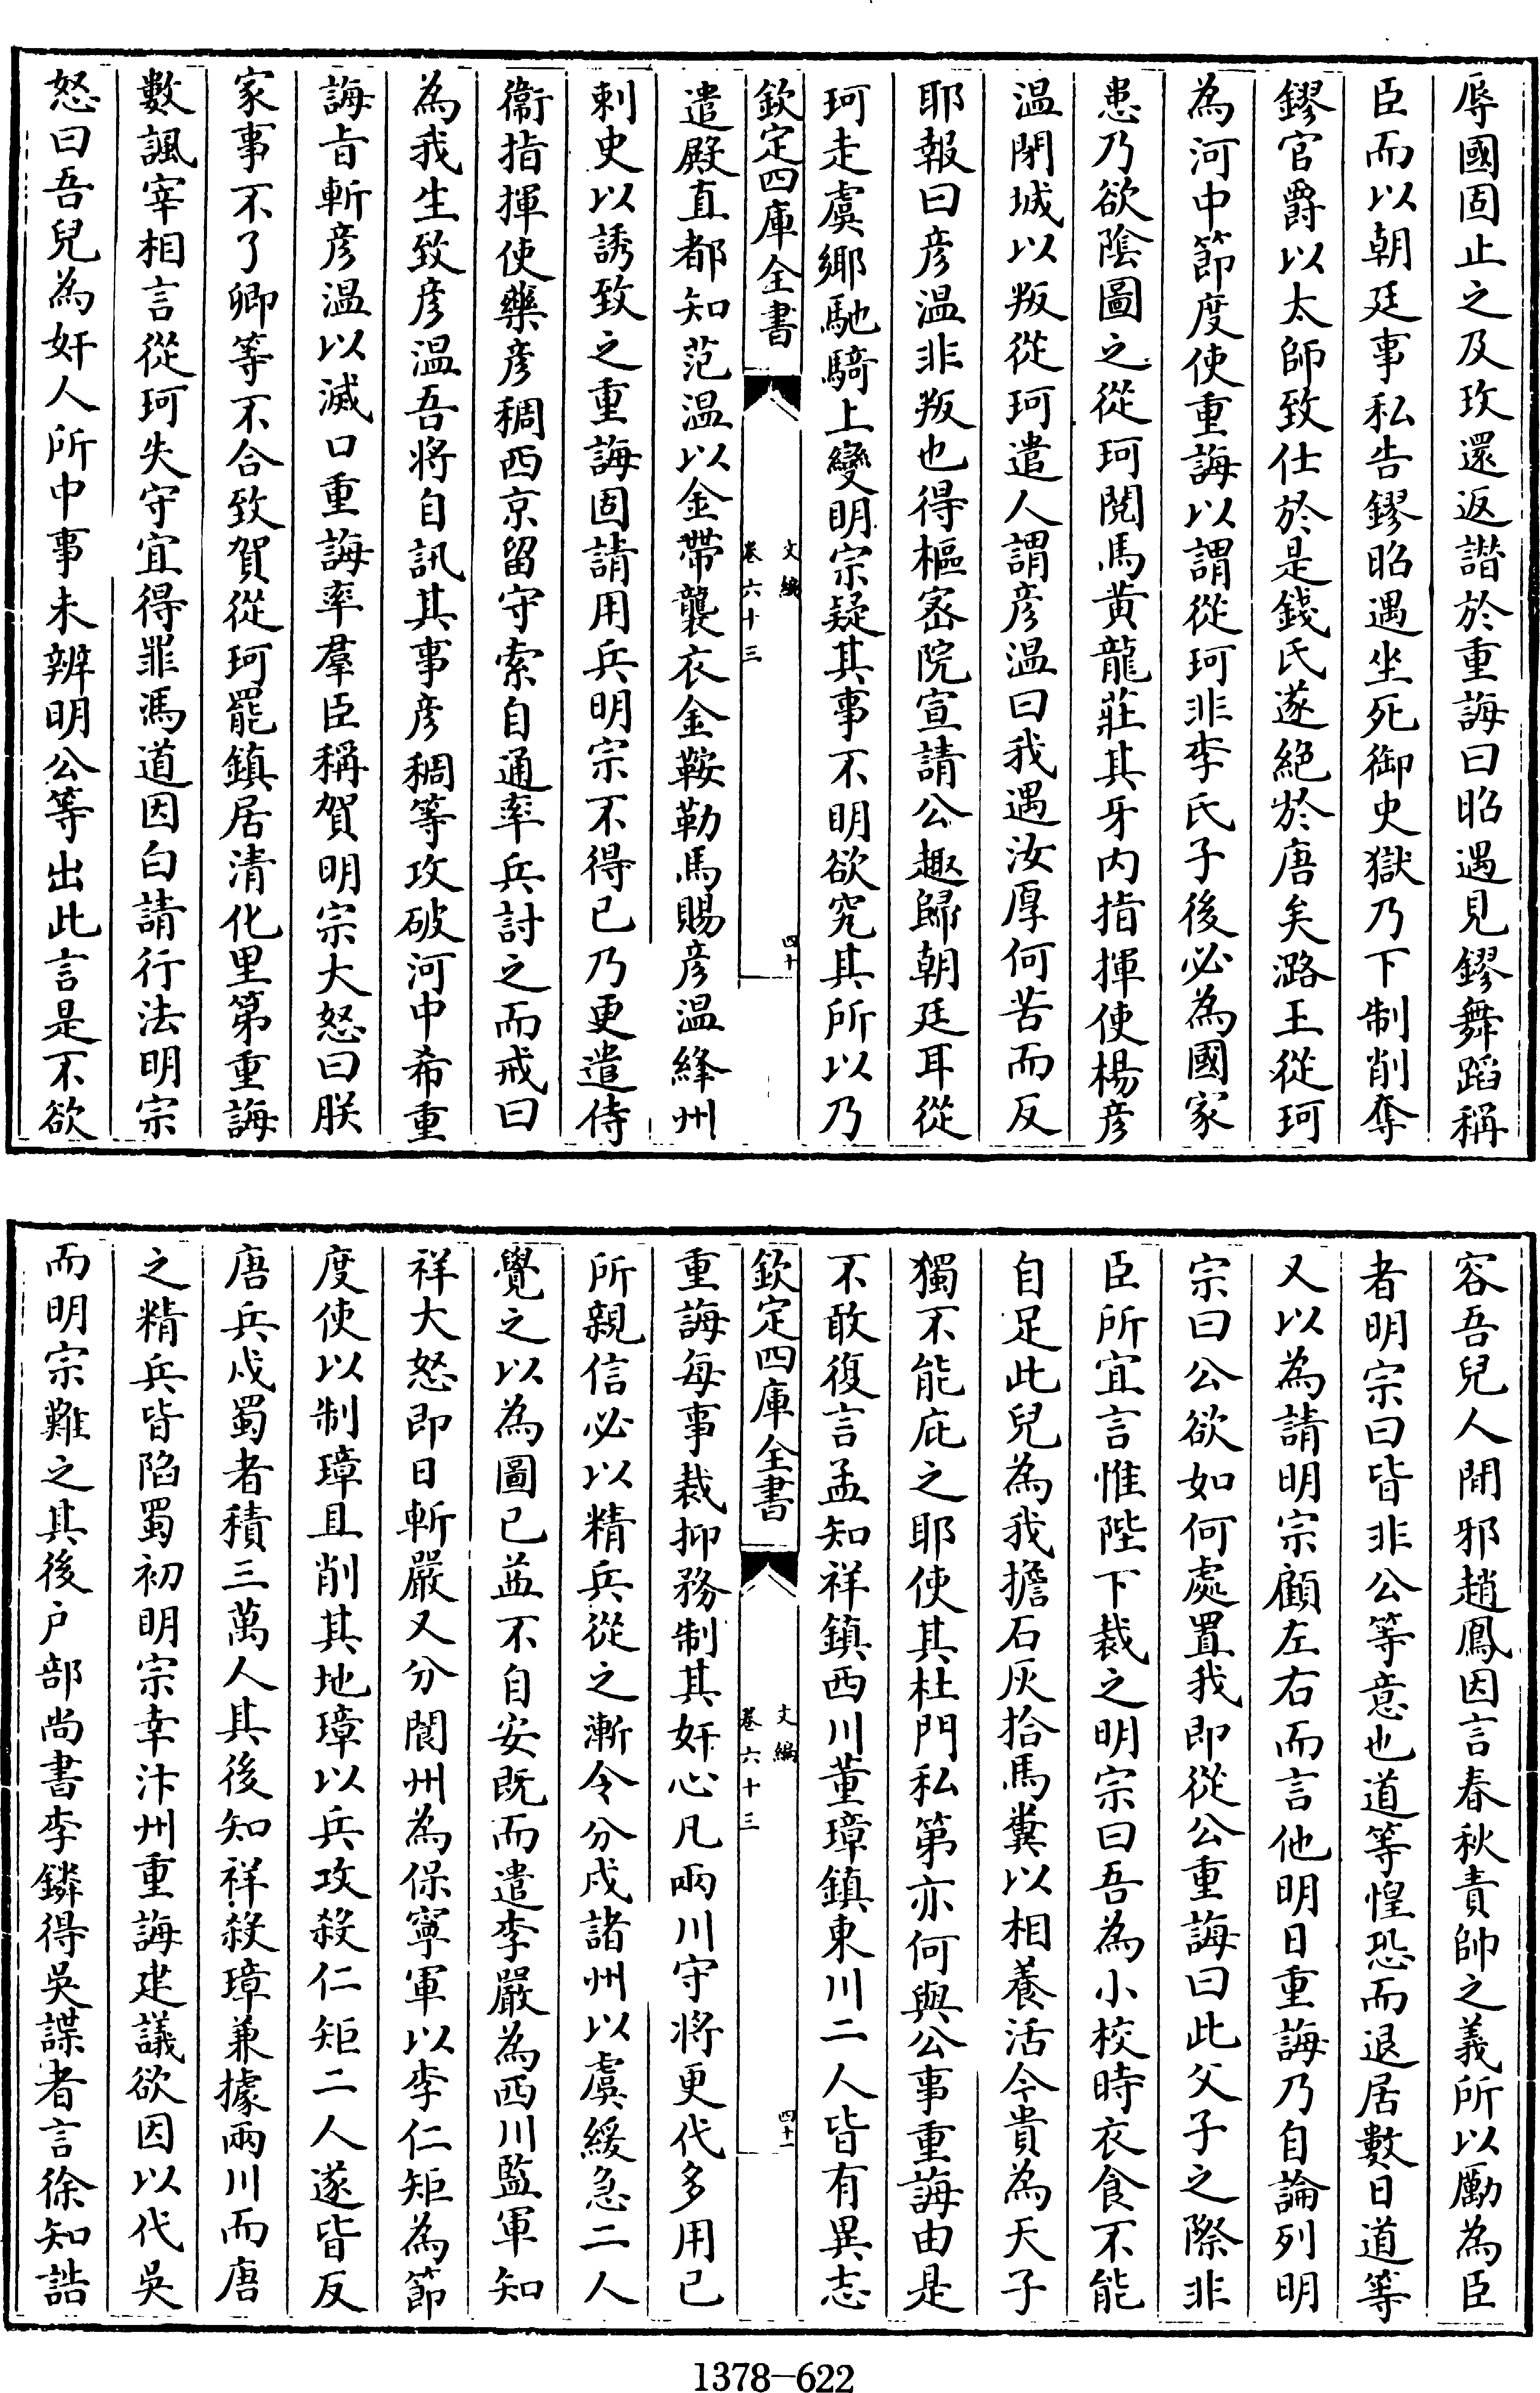 辱國固止之及玫還返譖於重誨曰昭遇見鏐舞蹈稱
臣而以朝廷事私告鏐昭遇坐死御史獄乃下制削奪
鏐官爵以太師致仕於是錢氏遂絕於唐矣潞王從珂
為河中節度使重誨以謂從珂非李氏子後必為國家
患乃欲陰圖之從珂閱馬黄龍莊其牙内指揮使楊彦
温閉城以叛從珂遣人謂彦温曰我遇汝厚何苦而反
耶報曰彦温非叛也得樞宻院宣請公趣歸朝廷耳從
珂走虞鄉馳騎上變明宗疑其事不明欲究其所以乃
欽定四庫全書
文編
卷六十三
四十
遣殿直都知范温以金帶襲衣金鞍勒馬賜彦温絳州
刺史以誘致之重誨固請用兵明宗不得已乃更遣侍
衞指揮使藥彦稠西京留守索自通率兵討之而戒曰
為我生致彦温吾將自訊其事彦稠等攻破河中希重
誨旨斬彦温以滅口重誨率羣臣稱賀明宗大怒曰朕
家事不了卿等不合致賀從珂罷鎮居清化里第重誨
數諷宰相言從珂失守宜得罪馮道因白請行法明宗
怒曰吾兒為奸人所中事未辨明公等出此言是不欲
容吾兒人間邪趙鳳因言春秋責帥之義所以勵為臣
者明宗曰皆非公等意也道等惶恐而退居數日道等
又以為請明宗顧左右而言他明日重誨乃自論列明
宗曰公欲如何處置我即從公重誨曰此父子之際非
臣所宜言惟陛下裁之明宗曰吾為小校時衣食不能
自足此兒為我擔石灰拾馬糞以相養活今貴為天子
獨不能庇之耶使其杜門私第亦何與公事重誨由是
不敢復言孟知祥鎮西川董璋鎮東川二人皆有異志
欽定四庫全書
文編
卷六十三
四十一
重誨每事裁抑務制其奸心凡兩川守將更代多用已
所親信必以精兵從之漸令分戍諸州以虞緩急二人
覺之以為圖已益不自安既而遣李嚴為西川監軍知
祥大怒即日斬嚴又分閬州為保寧軍以李仁矩為節
度使以制璋且削其地璋以兵攻殺仁矩二人遂皆反
唐兵戍蜀者積三萬人其後知祥殺璋兼據兩川而唐
之精兵皆陷蜀初明宗幸汴州重誨建議欲因以代吳
而明宗難之其後户部尚書李鏻得吳諜者言徐知誥
1378-622